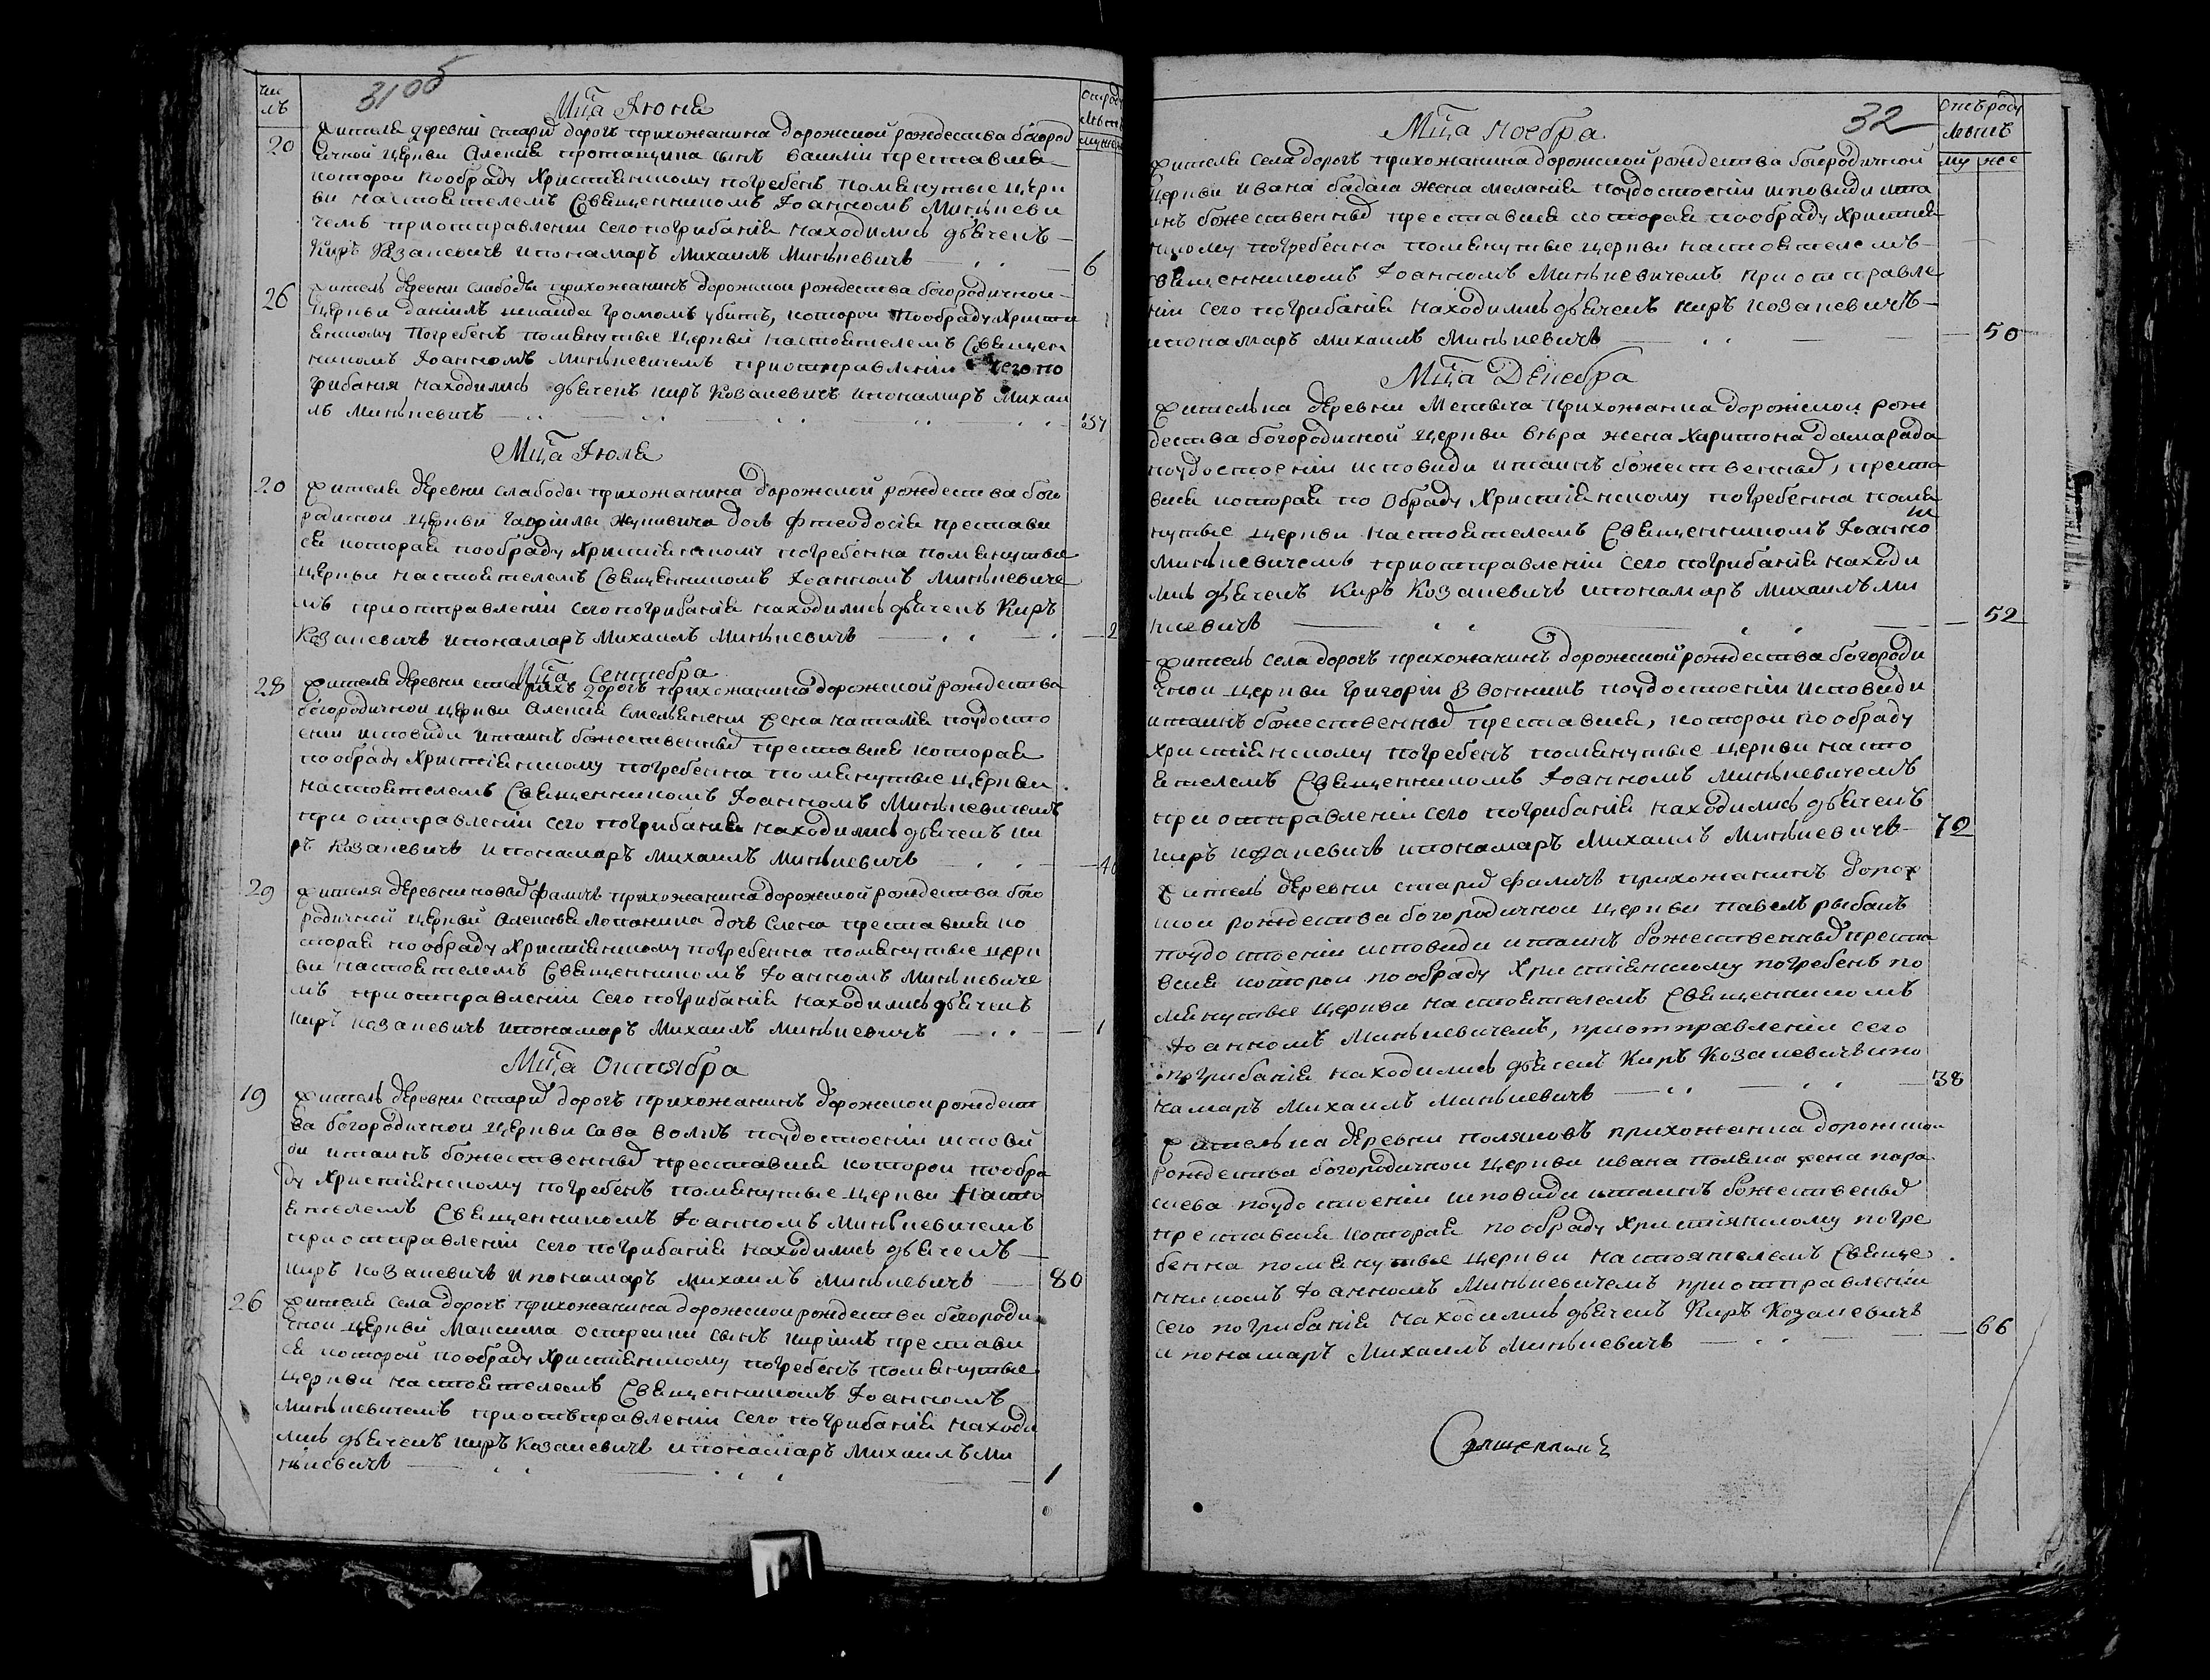 31 об
чис
лъ
отроду
летъ
муж
Мца Июня
20
жителя деревнѣ старых дорогъ прихожанина дорожской рождества богород
ичной церкви Алексѣя сынъ василій преставися
которой пообряду христіянскому погребенъ помянутые церк
ви настоятелемъ Священникомъ Іоанномъ Минкеви
чемъ приотправленіи сего погрибанія находились дьячекъ
Киръ Казакевичъ ипонамаръ Михаилъ Минкевичъ
6
26
житель деревни слабоды прихожанинъ дорожской рождества богородичной
церкви данілъ громомъ убитъ, которой пообряду христи
янскому погребенъ помянутые церкви настоятелемъ Священ
никомъ Іоанномъ Минкевичемъ приотправленіи сего по
грибания находились дьячекъ киръ Козакевичъ ипонамаръ Михаи
лъ Минкевичъ
37
Мца Июля
20
жителя деревни слабоды прихожанина дорожской рождества бого
родичной церкви гавріилы дочь феодосія престави
ся которая пообряду христіянскому погребенна помянутые
церкви настоятелемъ Священникомъ Іоанномъ Минкевиче
мъ приотправленіи сего погрибанія находились дьячекъ Киръ
Козакевичъ ипонамаръ Михаилъ Минкевичъ
2
Мца Сентебра
28
жителя деревни старихъ дорогъ прихожанина дорожской рождества
богородичной церкви Алексѣя Емельянени жена наталія поудосто
еніи исповиди итаинъ божественных преставися которая
пообряду христіянскому погребенна помянутые церкви
настоятелемъ Священникомъ Іоанномъ Минкевичемъ
при отправленіи сего погрибания находились дьячекъ ки
ръ Козакевичъ ипонамаръ Михаилъ Минкевичъ
40
29
жителя деревни новых фаличъ прихожанина дорожской рождества бого
родичной церкви Алексѣя Лопанина дочъ Елена преставися ко
торая пообряду христіянскому погребенна помянутые церк
ви настоятелемъ Священникомъ Іоанномъ Минкевиче
мъ приотправленіи сего погрибанія находились дьячекъ
Киръ Козакевичъ ипонамаръ Михаилъ Минкевичъ
1
Мца Октября
19
житель деревни старых дорогъ прихожанинъ дорожской рождест
ва богородичной церкви сава волкъ поудостоеніи испови
ди итаинъ божественных преставися которой пообря
ду Христіянскому погребенъ помянутые церкви насто
ятелемъ Священникомъ Іоанномъ Минкевичемъ
приотправленіи сего погрибанія находились дьячекъ
киръ козакевичъ ипонамаръ Михаилъ Минкевичъ
80
26
жителя села дорогъ прихожанина дорожской рождества богороди
чной церкви Максима острейки сынъ кирілъ престави
ся которой пообряду Христіянскому погребенъ помянутые
церкви настоятелемъ Священникомъ Іоанномъ
Минкевичемъ приотъправленіи сего погрибанія находи
лись дьячекъ киръ Козакевичъ ипонамаръ Михаилъ Ми
нкиевичъ
1
32
Отъроду
летъ
му
жес
Мца Ноебра
жителя села дорогъ прихожанина дорожской рождества богородичной
церкви ивана бадака жена меланія поудостоеніи исповиди ита
инъ божественных преставися которая пообряду христия
нскому погребенна помянутые церкви настоятелемъ
священникомъ Іоанномъ Минкевичемъ при отправле
ніи сего погрибанія находились дьячекъ киръ козакевичъ
ипонамаръ михаилъ Минкевичъ
50
Мца Декебра
жителька деревни прихожанка дорожской рож
дества богородичной церкви вѣра жена харитона дамарада
поудостоеніи исповиди итаинъ божественных, преста
вися которая по обряду Христіянскому погребенна помя
нутые церкви настоятелемъ Священникомъ Іоанно
м
Минкевичемъ приотправленіи сего погрибанія находи
лись дьячекъ Киръ Козакевичъ ипонамаръ Михаилъ Ми
нкиевичъ
52
житель села дорогъ прихожанинъ дорожской рождества богороди
чной церкви григорій поудостоеніи исповиди
итаинъ божественных преставися, которой пообряду
христіянскому погребенъ помянутые церкви насто
ятелемъ Священникомъ Іоанномъ Минкевичемъ
при отправленіи сего погрибанія находились дьячекъ
киръ козакевичъ ипонамаръ Михаилъ Минкиевичъ
70
житель деревни старых фаличъ прихожанинъ дорож
ской рождества богородичной церкви павелъ рыбакъ
поудостоеніи исповиди итаинъ божественных преста
вися которой пообряду Христіянскому погребенъ по
мянутые церкви настоятелемъ Священникомъ
Іоанномъ Минкиевичемъ, приотправленіи сего
погрибанія находились дьячекъ Киръ Козакевичъ ипо
намаръ Михаилъ Минкиевичъ
38
жителька деревни поляковъ прихожанка дорожской
рождества богородичной церкви ивана поляка жена пара
скева поудостоеніи исповиди итаинъ божественых
преставися которая пообряду христіянскому погре
бенна помянутые церкви настоятелемъ Свяще
нникомъ Іоанномъ Минкиевичемъ приотправленіи
сего погрибанія находились дьячекъ Киръ Козакевичъ
и понамаръ Михаилъ Минкиевичъ
66
Священникъ